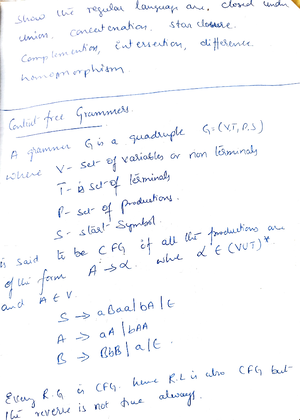 show the regular language are, closed under
union, concatenation, star closure.
complemention, intersertion, difference
homomorphism.
Context free Grammers.
A grammer G is a quadruple G=(V,T,P,S)
where V - set of variables or non terminals
T - is set of terminals
P - set of productions.
S - start Symbol.
is said to be CFG if all the productions are
of the form A → α. whre α ∈ (VUT)*.
and A ∈ V.
S → aBaa|bA|ε
A → aA|bAA
B → BbB|a|ε.
Every R.G is CFG. hence R.L is also CFG but
the reverse is not true always.